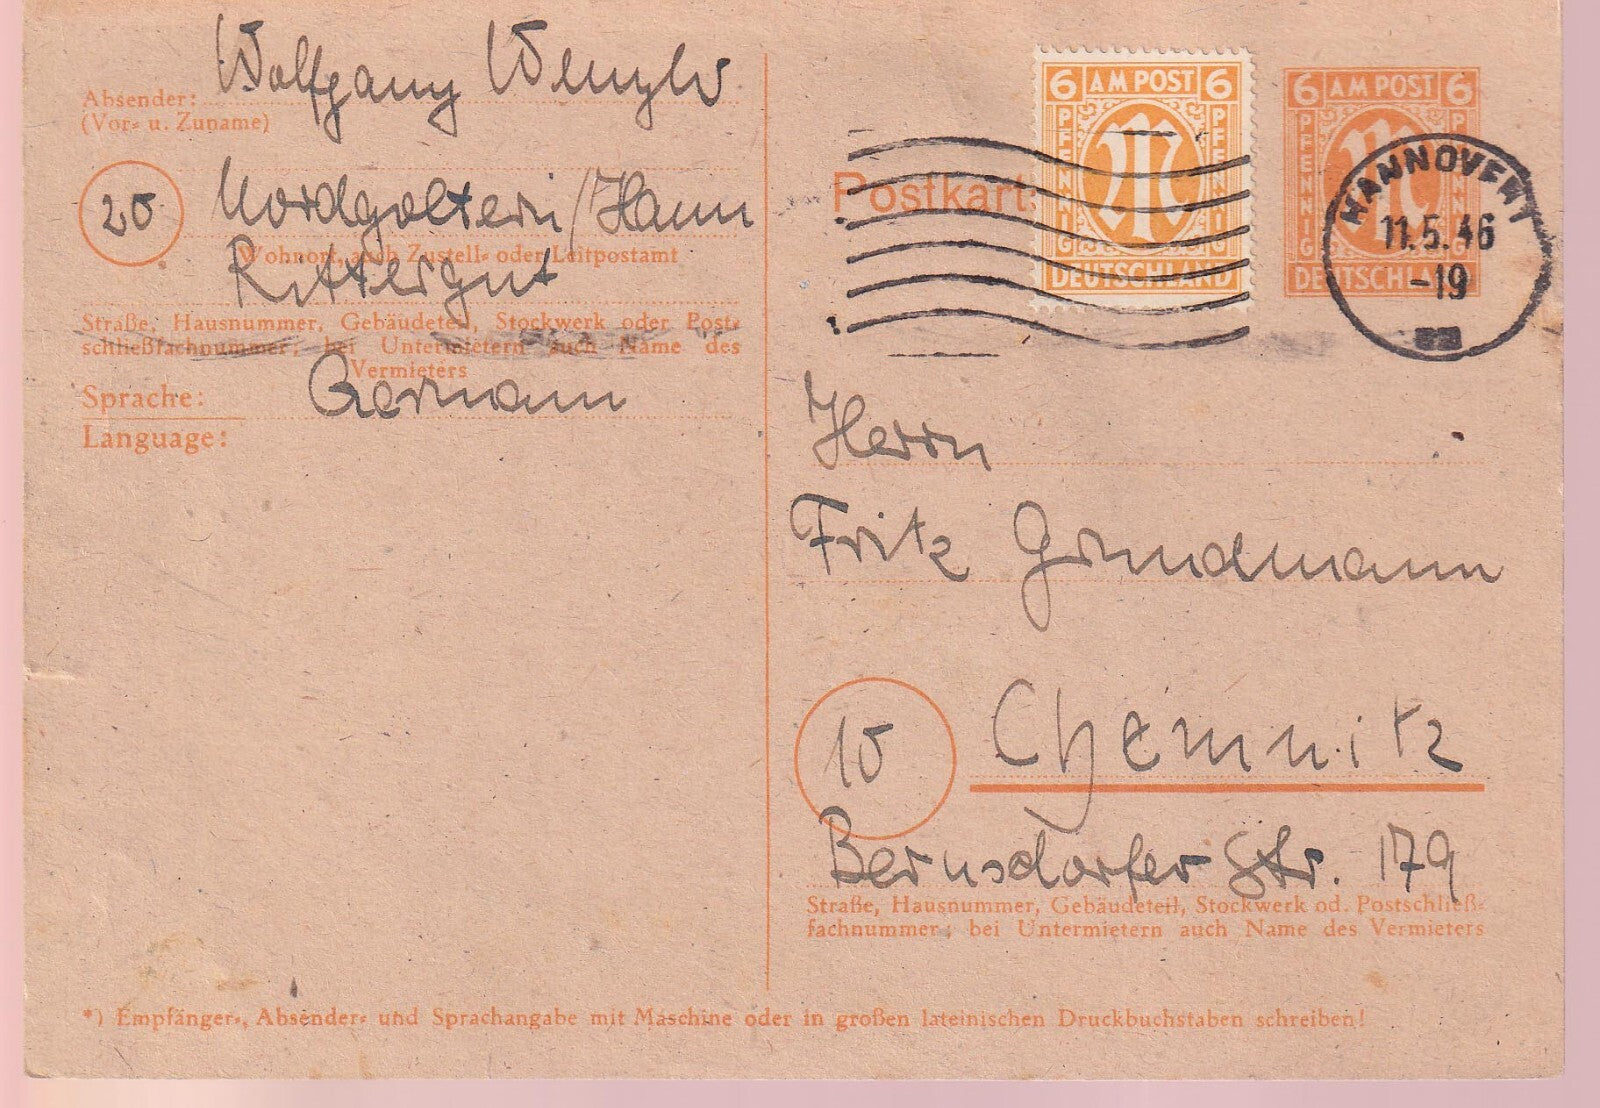 Absender: Wolfgang
(Vor- u. Zuname)
20 Nordgoltern/Hann
Wohnort, auch Zustell- oder Leitpostamt
Rittergut
Straße, Hausnummer, Gebäudeteil, Stockwerk oder Post-
schließfachnummer; bei Untermietern auch Name des
Vermieters
Sprache: German
Language:
Postkarte
6 AM POST 6
PFENNIG PFENNIG
DEUTSCHLAND
6 AM POST 6
PFENNIG PFENNIG
DEUTSCHLAND
HANNOVER
11.5.46
-19
Herrn
Fritz Grundmann
10 Chemnitz
Bernsdorfer Str. 179
Straße, Hausnummer, Gebäudeteil, Stockwerk od. Postschließ-
fachnummer; bei Untermietern auch Name des Vermieters
*) Empfänger-, Absender- und Sprachangabe mit Maschine oder in großen lateinischen Druckbuchstaben schreiben!